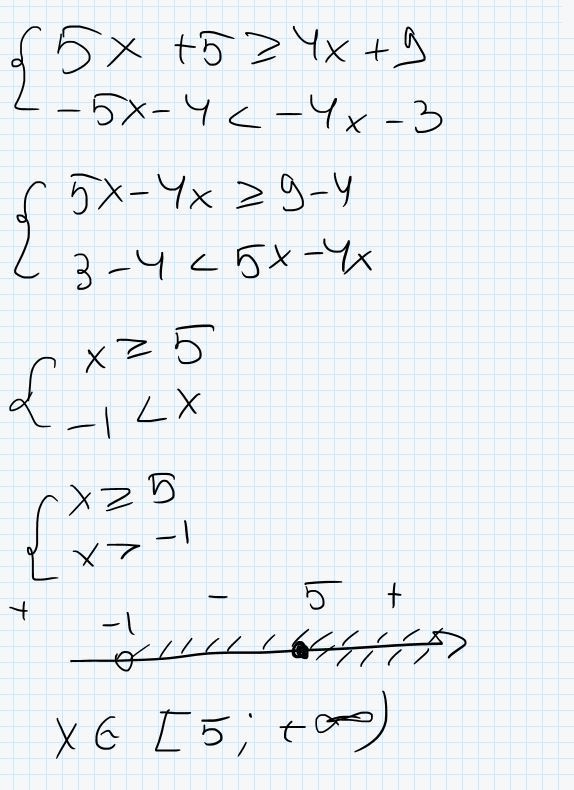 5x + 5 ≥ 4x + 9
-5x - 4 < -4x - 3
5x - 4x ≥ 9 - 4
3 - 4 < 5x - 4x
x ≥ 5
-1 < x
x ≥ 5
x > -1
+ -1 - 5 +
x ∈ [5; +∞)